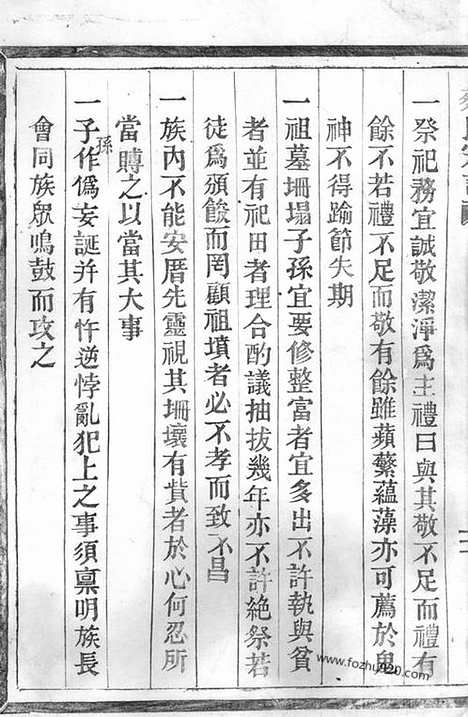 一祭祀務宜誠敬潔淨爲主禮曰與其敬不足而禮有
餘不若禮不足而敬有餘雖蘋蘩蘊藻亦可薦於鬼
神不得踰節失期
一祖墓坍塌子孫宜要修整富者宜多出不許執與貧
者並有祀田者理合酌議抽拔幾年亦不許絶祭若
徒爲頒餕而罔顧祖墳者必不孝而致不昌
一族内不能安厝先靈視其坍壞有貲者於心何忍所
當賻之以當其大事
一子孫作僞妄誕并有忤逆悖亂犯上之事須稟明族長
會同族眾鳴鼓而攻之
www.fozhu920.com